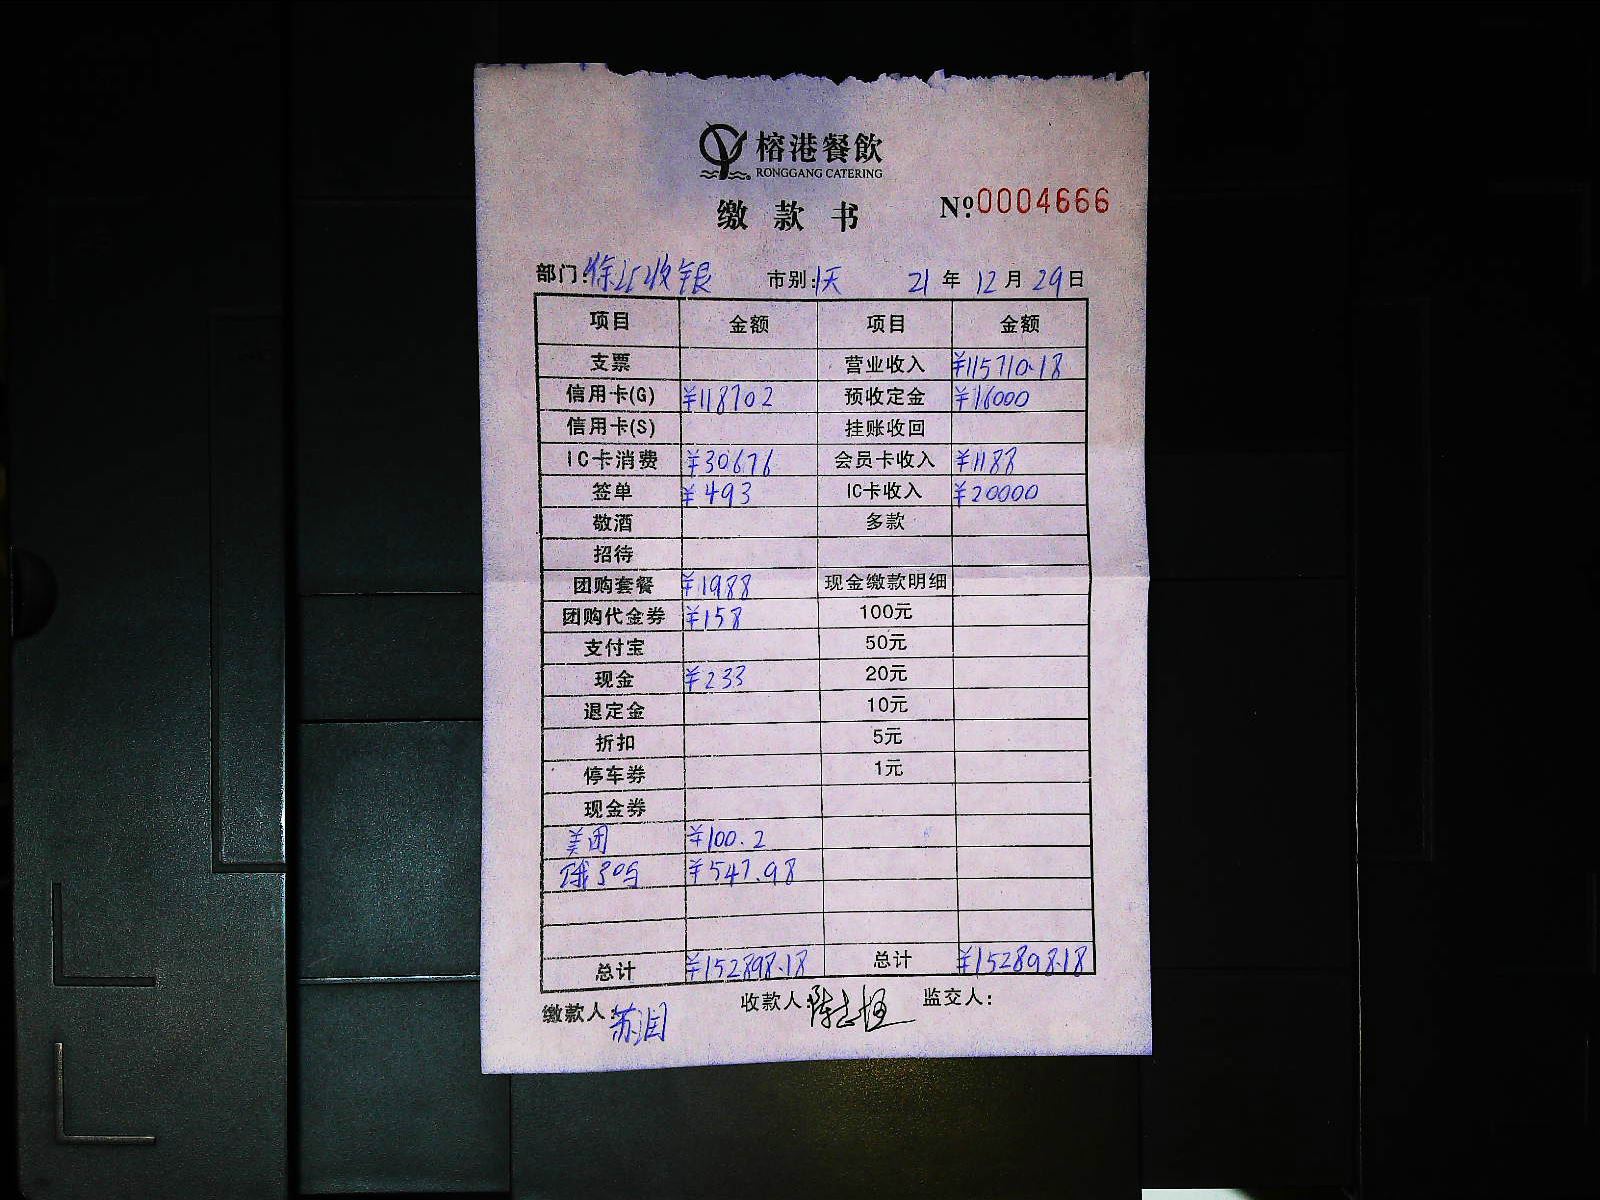 榕港餐飲
RONGGANG CATERING
缴款书 №0004666
部门:徐汇收银 市别:1天 21年12月29日
项目 金额 项目 金额
支票 营业收入 ¥115710.18
信用卡(G) ¥118702 预收定金 ¥16000
信用卡(S) 挂账收回
IC卡消费 ¥30676 会员卡收入 ¥1188
签单 ¥493 IC卡收入 ¥20000
敬酒 多款
招待
团购套餐 ¥1988 现金缴款明细
团购代金券 ¥158 100元
支付宝 50元
现金 ¥233 20元
退定金 10元
折扣 5元
停车券 1元
现金券
美团 ¥100.2
¥547.98
总计 ¥152898.18 总计 ¥152898.18
缴款人:苏润 收款人:陈志 监交人: